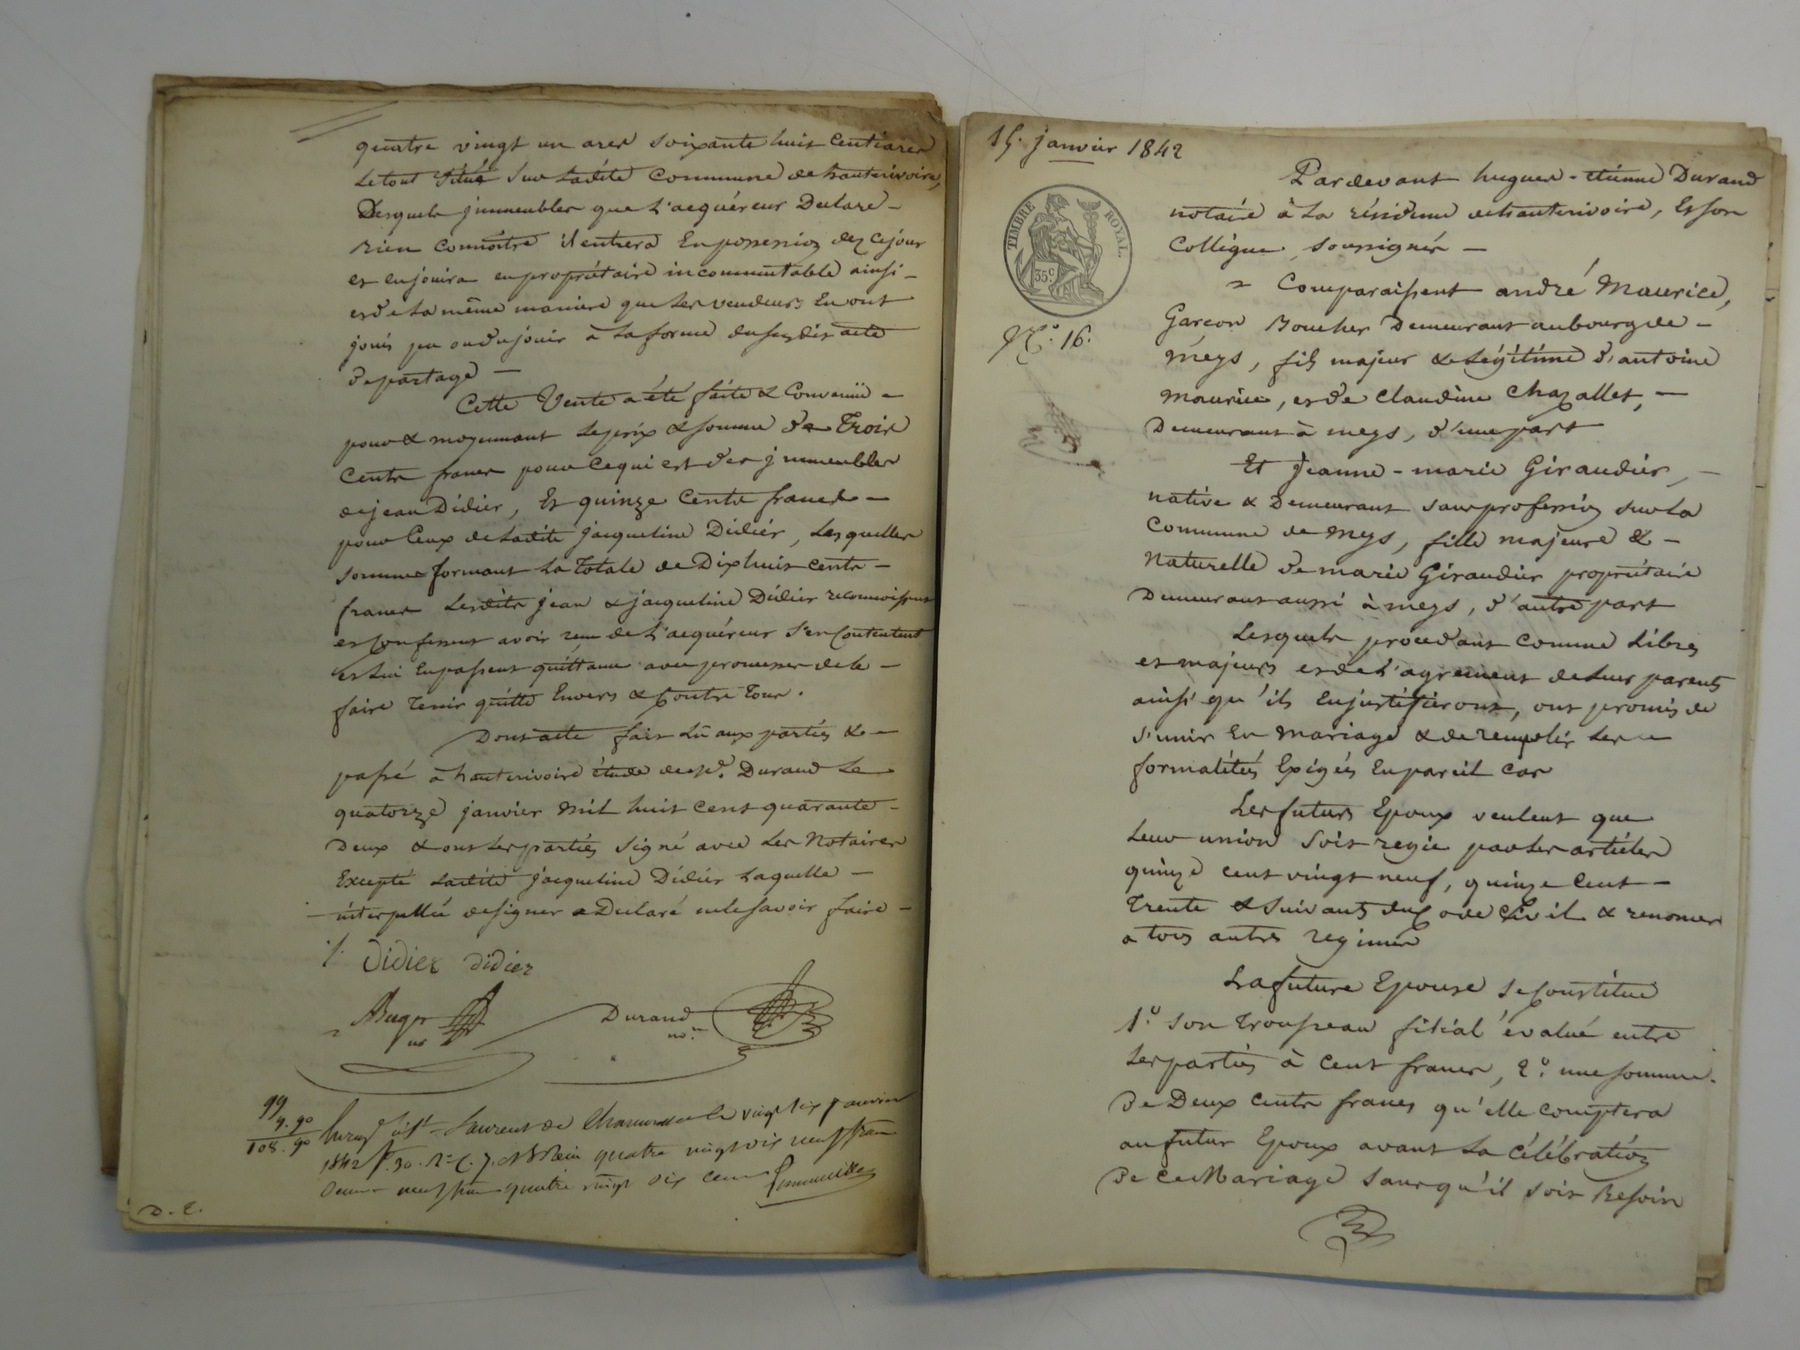 quatre vingt un ares soixante huit centiares
Le tout situé sur Ladite Commune de hauterivoire,
Desquels jmmeubles que L'acquéreur Declare -
bien connoitre il entrera En possession dez ce jour
et en jouira en propriétaire incommutable ainsi -
et de La même maniere que Les vendeurs En ont
jouis pu ou du jouir à La forme du susdit acte
de partage -
Cette Vente a été faite & Convenüe -
pour & moyennant Le prix & somme de Trois
Cents francs pour Ce qui est des jmmeubles
de jean Didier, Et quinze Cents francs -
pour Ceux de Ladite jacqueline Didier, Lesquelles
sommes formant La Totale de Dix huit cents -
francs Lesdits jean & jacqueline Didier reconnoissent
et confessent avoir reçu de L'acquéreur s'en Contentent
et Lui En passent quittance avec promesses de Le -
faire Tenir quitte Envers & Contre Tous.
Dont acte fait Lû aux parties & -
passé à hauterivoire étude de Me. Durand Le
quatorze janvier mil huit cent quarante -
Deux & ont Les parties signé avec Les Notaires
Excepté Ladite jacqueline Didier Laquelle -
- interpellée de signer a Declaré ne le savoir faire -
Didier didier
Durand
no.re
99
9.90
108.90
Enregé à St Laurent de Chamousset le vingt six janvier
1842 fo. 30. Ro C. 7. et Reçu quatre vingt dix neuf francs
Decime neuf francs quatre vingt dix cent
D. E.
15. janvier 1842
TIMBRE ROYAL
35c
No. 16.
Pardevant hugues - etienne Durand
notaire à La résidence de hauterivoire, Et son
Collègue, soussignés -
Comparaissent andré Maurice,
Garçon Boucher Demeurant au bourg de -
meys, fils majeur & Légitime d'antoine
maurice, et de Claudine Chazallet, -
Demeurant à meys, d'une part
Et Jeanne - marie Giraudier, -
native & Demeurant sans profession sur La
Commune de meys, fille majeure & -
Naturelle de marie Giraudier propriétaire
Demeurant aussi à meys, d'autre part
Lesquels procedant comme Libres
et majeurs et de L'agrement de Leurs parents
ainsi qu'ils En justifieront, ont promis de
s'unir En mariage & de remplir Les -
formalités Exigées En pareil cas
Les futurs Epoux veulent que
Leur union soit regie par Les articles
quinze cent vingt neuf, quinze Cent -
Trente & suivants du Code Civil & renoncer
a tous autres regimes
La future Epouse se Constitue
1.o son Trousseau filial évalué entre
Les parties à cent francs, 2.o une somme.
de Deux Cents francs qu'elle comptera
au futur Epoux avant La Célébration
de ce Mariage sans qu'il soit Besoin